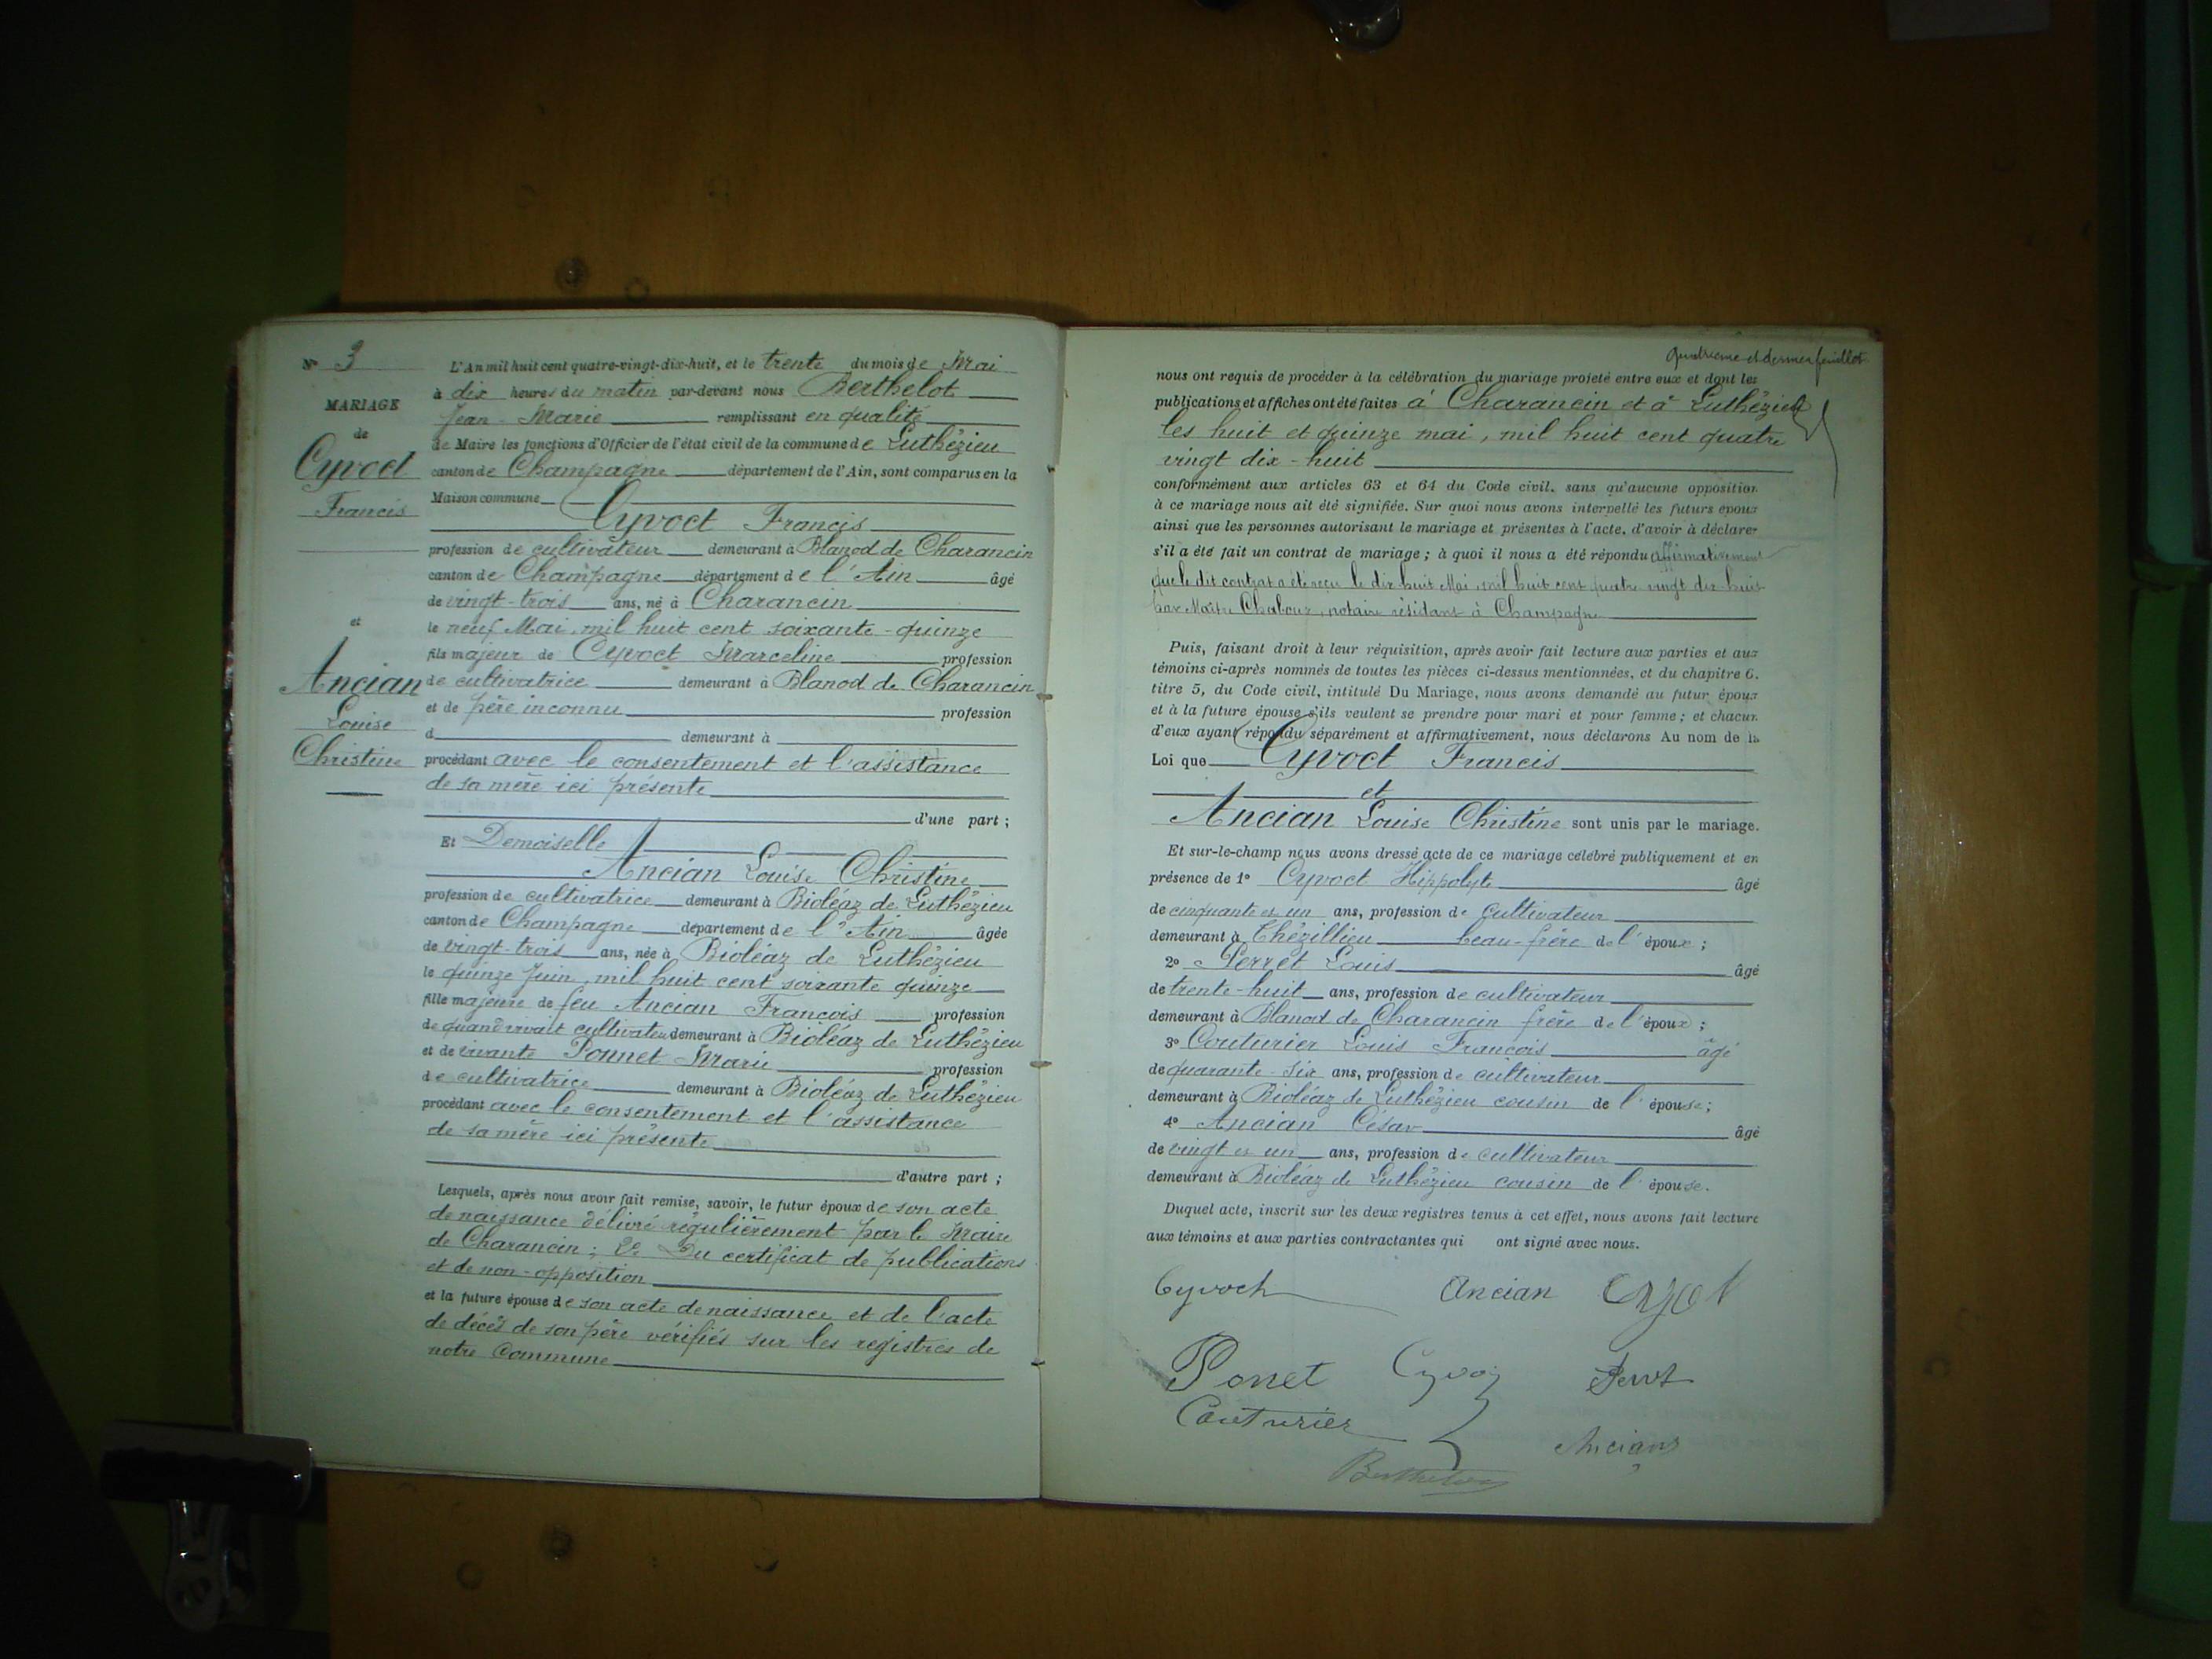 N° 3
MARIAGE
de
Cyvoct
Francis
et
Ancian
Louise
Christine
L'An mil huit cent quatre-vingt-dix-huit, et le trente du mois de Mai
à dix heures du matin par-devant nous Berthelot
Jean-Marie remplissant en qualité
de Maire les fonctions d'Officier de l'état civil de la commune de Luthézieu
canton de Champagne département de l'Ain, sont comparus en la
Maison commune
Cyvoct Francis
profession de cultivateur demeurant à Blanod de Charancin
canton de Champagne département de l'Ain âgé
de vingt-trois ans, né à Charancin
le neuf Mai, mil huit cent soixante-quinze
fils majeur de Cyvoct Marceline profession
de cultivatrice demeurant à Blanod de Charancin
et de père inconnu profession
d demeurant à
procédant avec le consentement et l'assistance
de sa mère ici présente
d'une part ;
Et Demoiselle
Ancian Louise Christine
profession de cultivatrice demeurant à Bioléaz de Luthézieu
canton de Champagne département de l'Ain âgée
de vingt-trois ans, née à Bioléaz de Luthézieu
le quinze Juin, mil huit cent soixante quinze
fille majeure de feu Ancian François profession
de quand vivait cultivateur demeurant à Bioléaz de Luthézieu
et de vivante Ponnet Marie profession
de cultivatrice demeurant à Bioléaz de Luthézieu
procédant avec le consentement et l'assistance
de sa mère ici présente
d'autre part ;
Lesquels, après nous avoir fait remise, savoir, le futur époux de son acte
de naissance délivré régulièrement par le Maire
de Charancin ; 2° Du certificat de publications
et de non-opposition
et la future épouse de son acte de naissance et de l'acte
de décès de son père vérifiés sur les registres de
notre Commune
quatrième et dernier feuillet
nous ont requis de procéder à la célébration du mariage projeté entre eux et dont les
publications et affiches ont été faites à Charancin et à Luthézieu
les huit et quinze mai, mil huit cent quatre
vingt dix-huit
conformément aux articles 63 et 64 du Code civil, sans qu'aucune opposition
à ce mariage nous ait été signifiée. Sur quoi nous avons interpellé les futurs époux
ainsi que les personnes autorisant le mariage et présentes à l'acte, d'avoir à déclarer
s'il a été fait un contrat de mariage ; à quoi il nous a été répondu affirmativement
que le dit contrat a été reçu le dix huit Mai, mil huit cent quatre vingt dix huit
par Maître Chaboux, notaire résidant à Champagne
Puis, faisant droit à leur réquisition, après avoir fait lecture aux parties et aux
témoins ci-après nommés de toutes les pièces ci-dessus mentionnées, et du chapitre 6,
titre 5, du Code civil, intitulé Du Mariage, nous avons demandé au futur époux
et à la future épouse s'ils veulent se prendre pour mari et pour femme ; et chacun
d'eux ayant répondu séparément et affirmativement, nous déclarons Au nom de la
Loi que Cyvoct Francis
et
Ancian Louise Christine sont unis par le mariage.
Et sur-le-champ nous avons dressé acte de ce mariage célébré publiquement et en
présence de 1° Cyvoct Hippolyte âgé
de cinquante et un ans, profession de cultivateur
demeurant à Thézillieu beau-frère de l'époux ;
2° Perret Louis âgé
de trente-huit ans, profession de cultivateur
demeurant à Blanod de Charancin frère de l'époux ;
3° Couturier Louis François âgé
de quarante-six ans, profession de cultivateur
demeurant à Bioléaz de Luthézieu cousin de l'épouse ;
4° Ancian César âgé
de vingt et un ans, profession de cultivateur
demeurant à Bioléaz de Luthézieu cousin de l'épouse.
Duquel acte, inscrit sur les deux registres tenus à cet effet, nous avons fait lecture
aux témoins et aux parties contractantes qui ont signé avec nous.
Cyvoct Ancian
Ponet
Couturier
Ancian
Berthelot